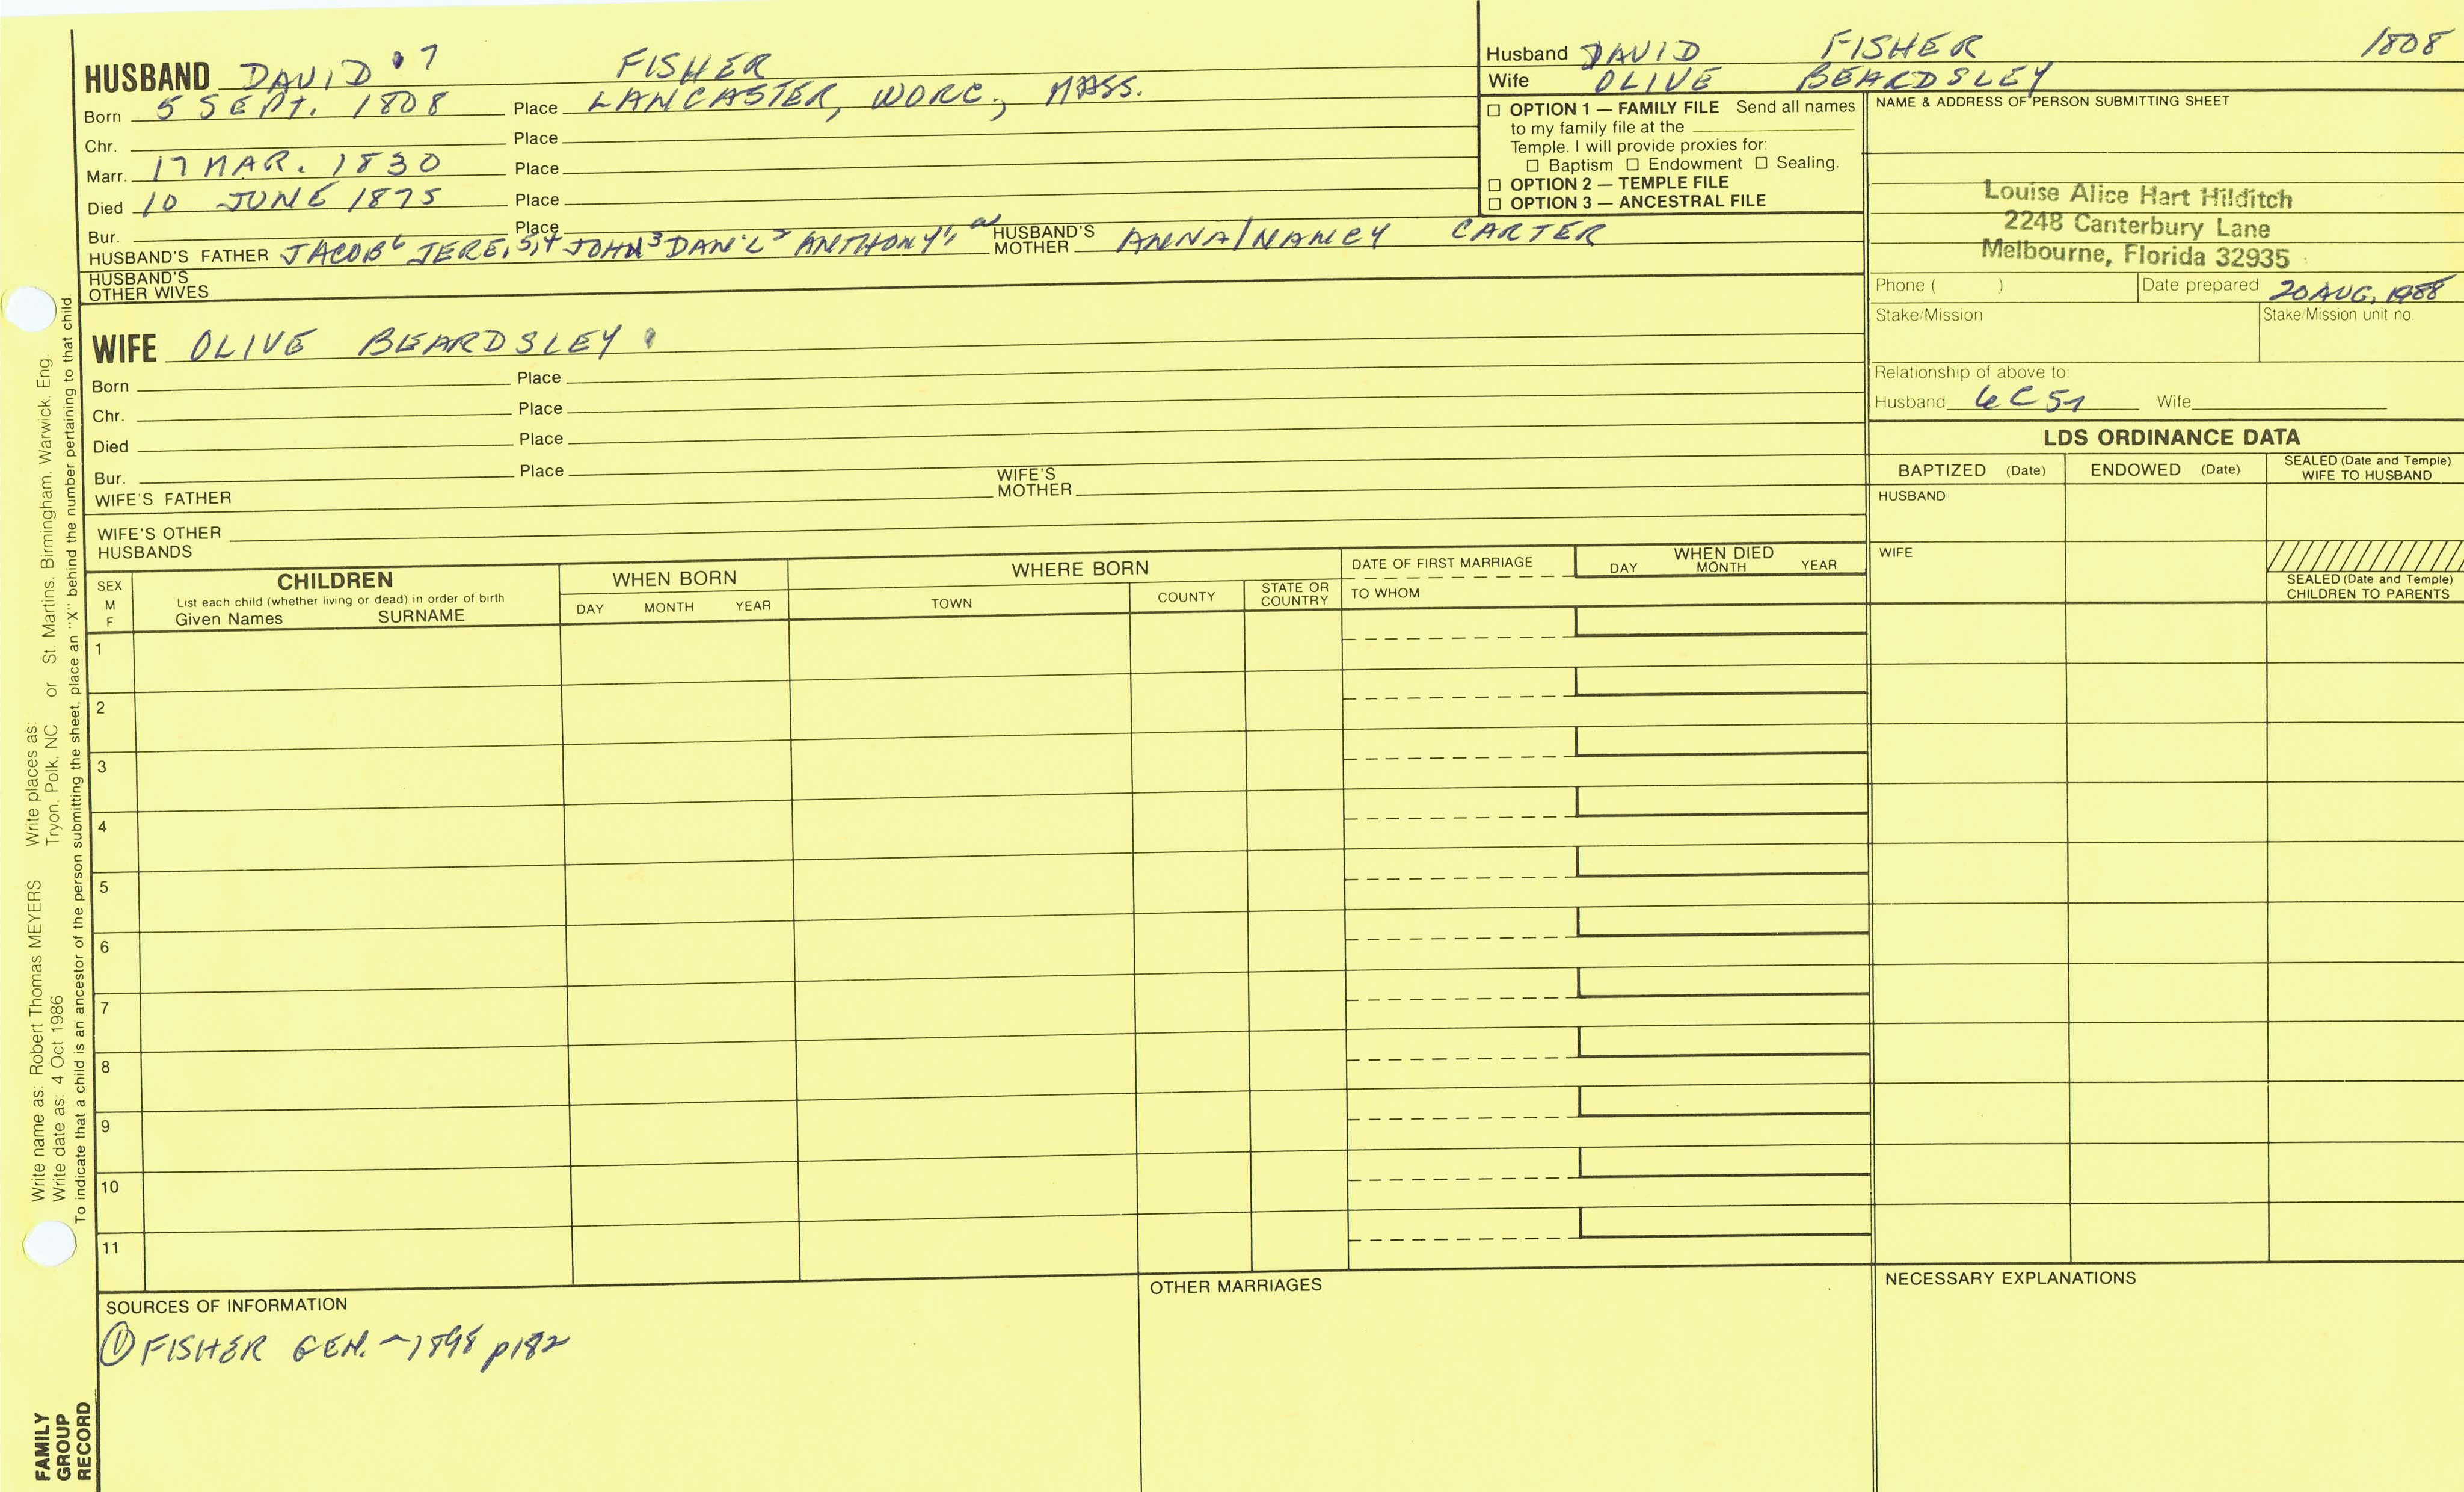 HUSBAND DAVID 7 FISHER
Born 5 SEPT. 1808 Place LANCASTER, WORC., MASS.
Chr. Place
Marr. 17 MAR. 1830 Place
Died 10 JUNE 1875 Place
Bur. Place
HUSBAND'S FATHER JACOB6 JERE.5,4 JOHN3 DAN'L2 ANTHONY1, HUSBAND'S MOTHER ANNA/NANCY CARTER
HUSBAND'S OTHER WIVES
WIFE OLIVE BEARDSLEY
Born Place
Chr. Place
Died Place
Bur. Place
WIFE'S FATHER WIFE'S MOTHER
WIFE'S OTHER HUSBANDS
Husband DAVID FISHER 1808
Wife OLIVE BEARDSLEY
☐ OPTION 1 — FAMILY FILE Send all names
to my family file at the
Temple. I will provide proxies for:
☐ Baptism ☐ Endowment ☐ Sealing.
☐ OPTION 2 — TEMPLE FILE
☐ OPTION 3 — ANCESTRAL FILE
NAME & ADDRESS OF PERSON SUBMITTING SHEET
Louise Alice Hart Hilditch
2248 Canterbury Lane
Melbourne, Florida 32935
Phone ( ) Date prepared 20 AUG, 1988
Stake/Mission Stake/Mission unit no.
Relationship of above to:
Husband 4C5R Wife
LDS ORDINANCE DATA
BAPTIZED (Date) ENDOWED (Date) SEALED (Date and Temple) WIFE TO HUSBAND
HUSBAND
WIFE
SEALED (Date and Temple)
CHILDREN TO PARENTS
SEX M F
CHILDREN
List each child (whether living or dead) in order of birth
Given Names SURNAME
WHEN BORN
DAY MONTH YEAR
WHERE BORN
TOWN COUNTY STATE OR COUNTRY
DATE OF FIRST MARRIAGE
TO WHOM
WHEN DIED
DAY MONTH YEAR
1
2
3
4
5
6
7
8
9
10
11
SOURCES OF INFORMATION
① FISHER GEN. ~1898 p182
OTHER MARRIAGES
NECESSARY EXPLANATIONS
Write name as: Robert Thomas MEYERS Write places as:
Write date as: 4 Oct 1986 Tryon, Polk, NC or St. Martins, Birmingham, Warwick, Eng
To indicate that a child is an ancestor of the person submitting the sheet, place an "X" behind the number pertaining to that child.
FAMILY
GROUP
RECORD